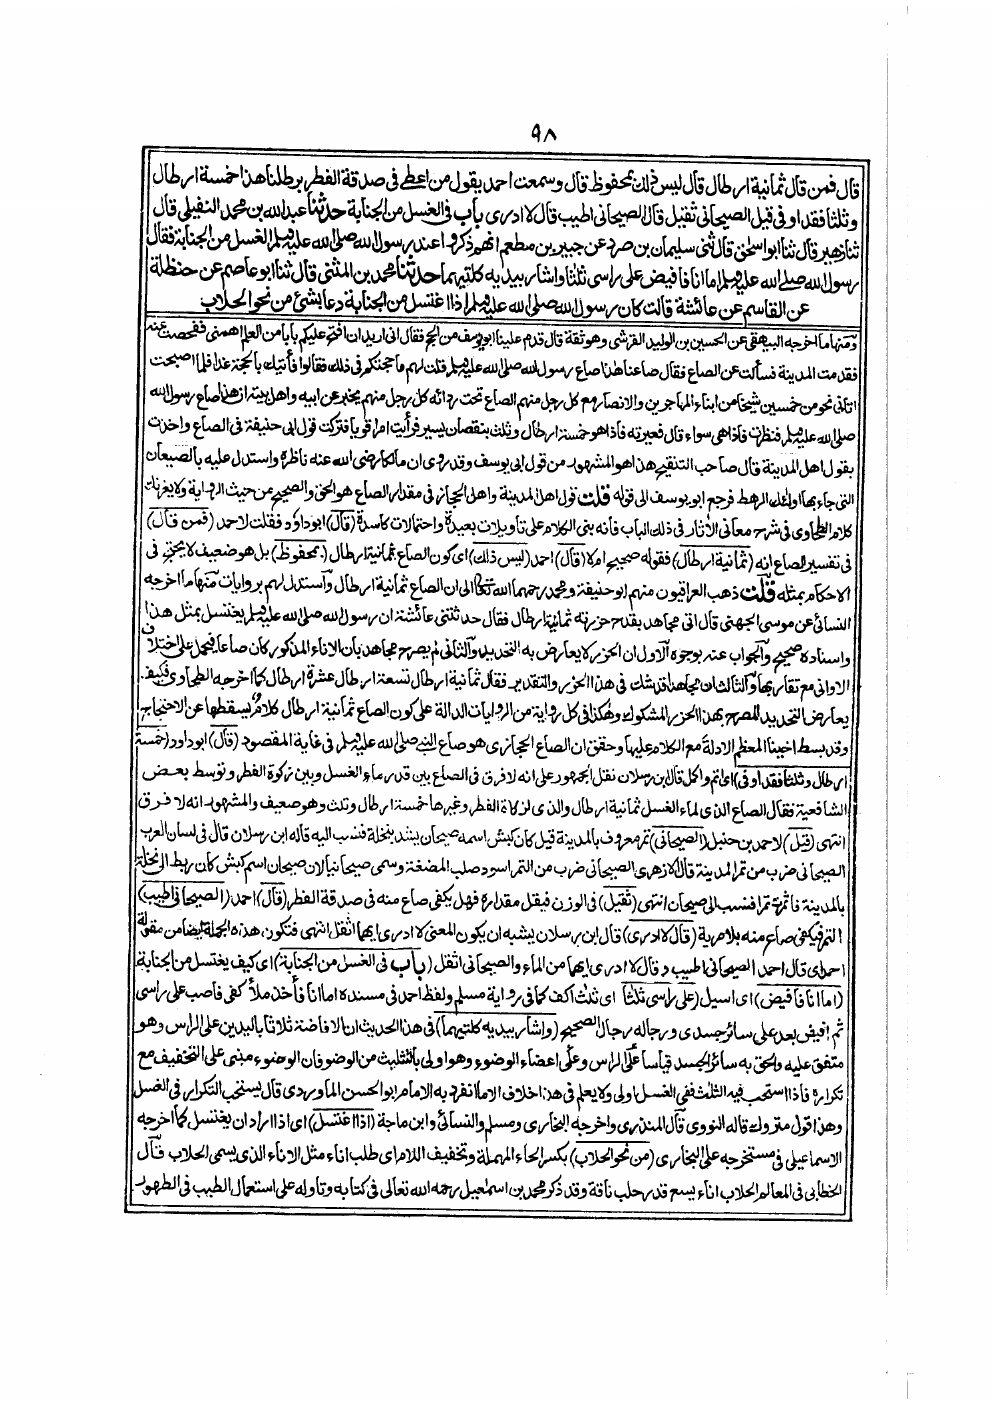 ٩٨
قال فمن قال ثمانية ارطال قال ليس ذلك بمحفوظ قال وسمعت احمد يقول من اعطى فى صدقة الفطر برطلنا هذا خمسة ارطال
وثلثا فقد اوفى قيل الصيحانى ثقيل قال الصيحانى اطيب قال لا ادرى باب فى الغسل من الجنابة حدثنا عبدالله بن محمد النفيلى قال
ثنا زهير قال ثنا ابو اسحق قال ثنى سليمان بن صرد عن جبير بن مطعم انهم ذكروا عند رسول الله صلى الله عليه وسلم الغسل من الجنابة فقال
رسول الله صلى الله عليه وسلم اما انا فافيض على راسى ثلثا واشار بيديه كلتيهما حدثنا محمد بن المثنى قال ثنا ابو عاصم عن حنظلة
عن القاسم عن عائشة قالت كان رسول الله صلى الله عليه وسلم اذا اغتسل من الجنابة دعا بشئ من نحو الحلاب
ومنها ما اخرجه البيهقى عن الحسين بن الوليد القرشى وهو ثقة قال قدم علينا ابو يوسف من الحج فقال انى اريد ان افتح عليكم بابا من العلم اهمنى ففحصت عنه
فقدمت المدينة فسألت عن الصاع فقال صاعنا هذا صاع رسول الله صلى الله عليه وسلم قلت لهم ما حجتكم فى ذلك فقالوا نأتيك بالحجة غدا فلما اصبحت
اتانى نحو من خمسين شيخا من ابناء المهاجرين والانصار مع كل رجل منهم الصاع تحت ردائه كل رجل منهم يخبر عن ابيه واهل بيته ان هذا صاع رسول الله
صلى الله عليه وسلم فنظرت فاذا هى سواء قال فعيرته فاذا هو خمسة ارطال وثلث بنقصان يسير فرأيت امرا قويا فتركت قول ابى حنيفة فى الصاع واخذت
بقول اهل المدينة قال صاحب التنقيح هذا هو المشهور من قول ابى يوسف وقد روى ان مالكا رضى الله عنه ناظره واستدل عليه بالصيعان
التى جاء بها اولئك الرهط فرجع ابو يوسف الى قوله قلت قول اهل المدينة واهل الحجاز فى مقدار الصاع هو الحق والصحيح من حيث الرواية ولا يغرنك
كلام الطحاوى فى شرح معانى الآثار فى ذلك الباب فانه بنى الكلام على تأويلات بعيدة واحتمالات كاسدة (قال) ابو داود فقلت لاحمد (فمن قال)
فى تفسير الصاع انه (ثمانية ارطال) فقوله صحيح ام لا (قال) احمد (ليس ذلك) اى كون الصاع ثمانية ارطال (بمحفوظ) بل هو ضعيف لا يحتج فى
الاحكام بمثله قلت ذهب العراقيون منهم ابو حنيفة ومحمد رحمهما الله تعالى الى ان الصاع ثمانية ارطال واستدل لهم بروايات منها ما اخرجه
النسائى عن موسى الجهنى قال اتى مجاهد بقدح حزرته ثمانية ارطال فقال حدثتنى عائشة ان رسول الله صلى الله عليه وسلم يغتسل بمثل هذا
واسناده صحيح والجواب عنه بوجوه الاول ان الحزر لا يعارض به التحديد والثانى لم يصرح مجاهد بان الاناء المذكور كان صاعا فيحمل على اختلاف
الاوانى مع تقاربها والثالث ان مجاهدا قد شك فى هذا الحزر والتقدير فقال ثمانية ارطال تسعة ارطال عشرة ارطال كما اخرجه الطحاوى فكيف
يعارض التحديد المصرح بهذا الحزر المشكوك وهكذا فى كل رواية من الروايات الدالة على كون الصاع ثمانية ارطال كلام يسقطها عن الاحتجاج
وقد بسط اخينا المعظم الادلة مع الكلام عليها وحقق ان الصاع الحجازى هو صاع النبى صلى الله عليه وسلم فى غاية المقصود (قال) ابو داود (خمسة
ارطال وثلثا فقد اوفى) اى اتم واكل قال ابن رسلان نقل الجمهور على انه لا فرق فى الصاع بين قدر ماء الغسل وبين زكوة الفطر وتوسط بعض
الشافعية فقال الصاع الذى لماء الغسل ثمانية ارطال والذى لزكاة الفطر وغيرها خمسة ارطال وثلث وهو ضعيف والمشهور انه لا فرق
انتهى (قيل) لاحمد بن حنبل (الصيحانى) تمر معروف بالمدينة قيل كان كبش اسمه صيحان يشد بنخلة فنسب اليه قاله ابن رسلان قال فى لسان العرب
الصيحانى ضرب من تمر المدينة قال الازهرى الصيحانى ضرب من التمر اسود صلب المضغة وسمى صيحانيا لان صيحان اسم كبش كان ربط الى نخلة
بالمدينة فاثمرت تمرا فنسب الى صيحان انتهى (ثقيل) فى الوزن فيقل مقداره فهل يكفى صاع منه فى صدقة الفطر (قال) احمد (الصيحانى اطيب)
التمر فيكفى صاع منه بلا مرية (قال لا ادرى) قال ابن رسلان يشبه ان يكون المعنى لا ادرى ايهما اثقل انتهى فتكون هذه الجملة ايضا من مقولة
احمد اى قال احمد الصيحانى اطيب وقال لا ادرى ايهما من الماء والصيحانى اثقل (باب فى الغسل من الجنابة) اى كيف يغتسل من الجنابة
(اما انا فافيض) اى اسيل (على راسى ثلثا) اى ثلث اكف كما فى رواية مسلم ولفظ احمد فى مسنده اما انا فآخذ ملأ كفى فاصب على راسى
ثم افيض بعد على سائر جسدى ورجاله رجال الصحيح (واشار بيديه كلتيهما) فى هذا الحديث ان الافاضة ثلاثا باليدين على الراس وهو
متفق عليه والحق به سائر الجسد قياسا على الراس وعلى اعضاء الوضوء وهو اولى بالتثليث من الوضوء فان الوضوء مبنى على التخفيف مع
تكراره فاذا استحب فيه الثلث ففى الغسل اولى ولا يعلم فى هذا خلاف الا ما انفرد به الامام ابو الحسن الماوردى قال يستحب التكرار فى الغسل
وهذا قول متروك قاله النووى قال المنذرى واخرجه البخارى ومسلم والنسائى وابن ماجة (اذا اغتسل) اى اذا اراد ان يغتسل كما اخرجه
الاسماعيلى فى مستخرجه على البخارى (من نحو الحلاب) بكسر الحاء المهملة وتخفيف اللام اى طلب اناء مثل الاناء الذى يسمى الحلاب قال
الخطابى فى المعالم الحلاب اناء يسع قدر حلب ناقة وقد ذكر محمد بن اسمعيل رحمه الله تعالى فى كتابه وتاوله على استعمال الطيب فى الطهور